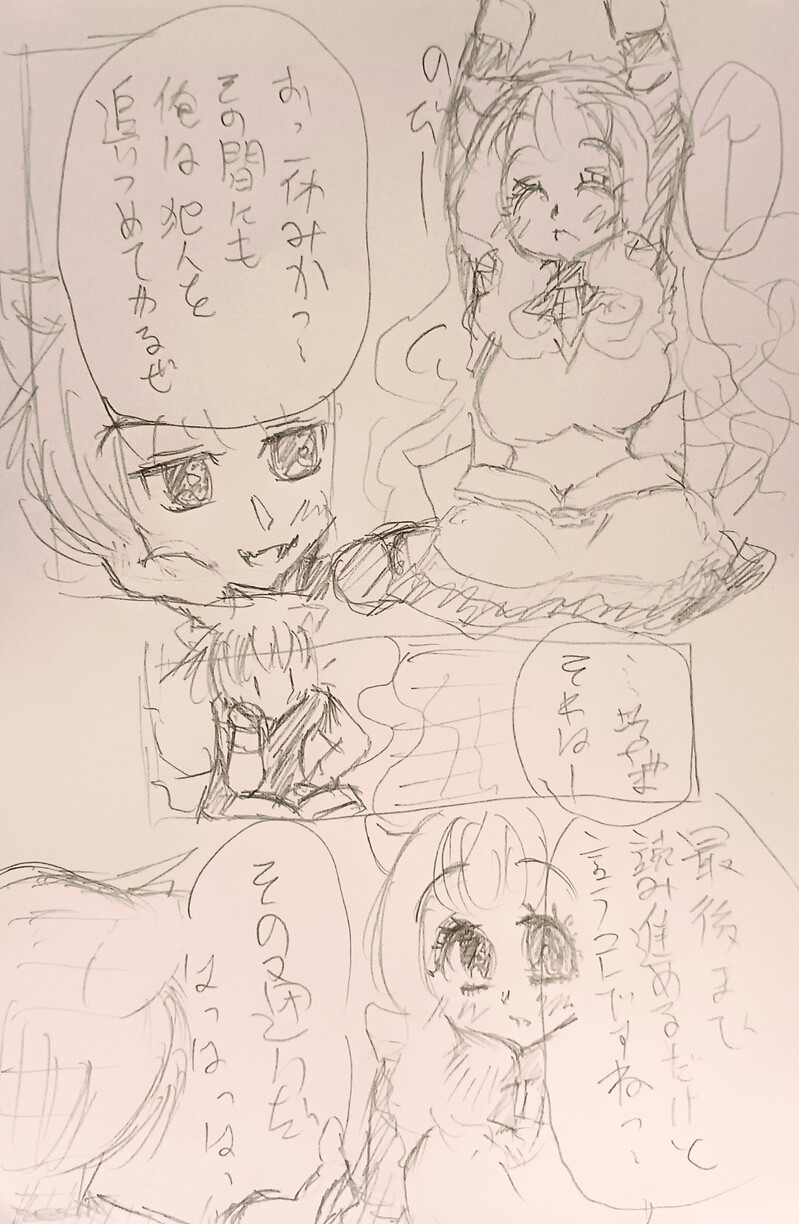 んー
のびー
おっ一休みか〜
その間にも
俺は犯人を
追いつめてやるぜ
それはー
最後まで
読み進めるだけと
言うコトですねっ〜
その通りだ
はっはっはっ